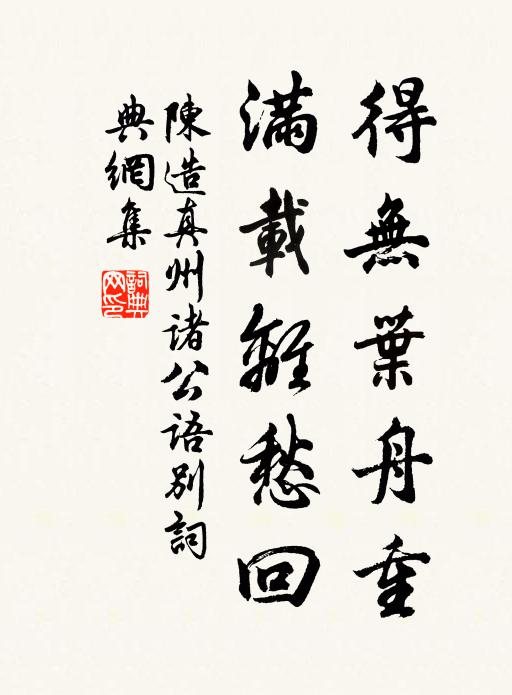 得無葉舟重
滿載離愁回
陳造真州諸公語別詞
典網集
詞典網印